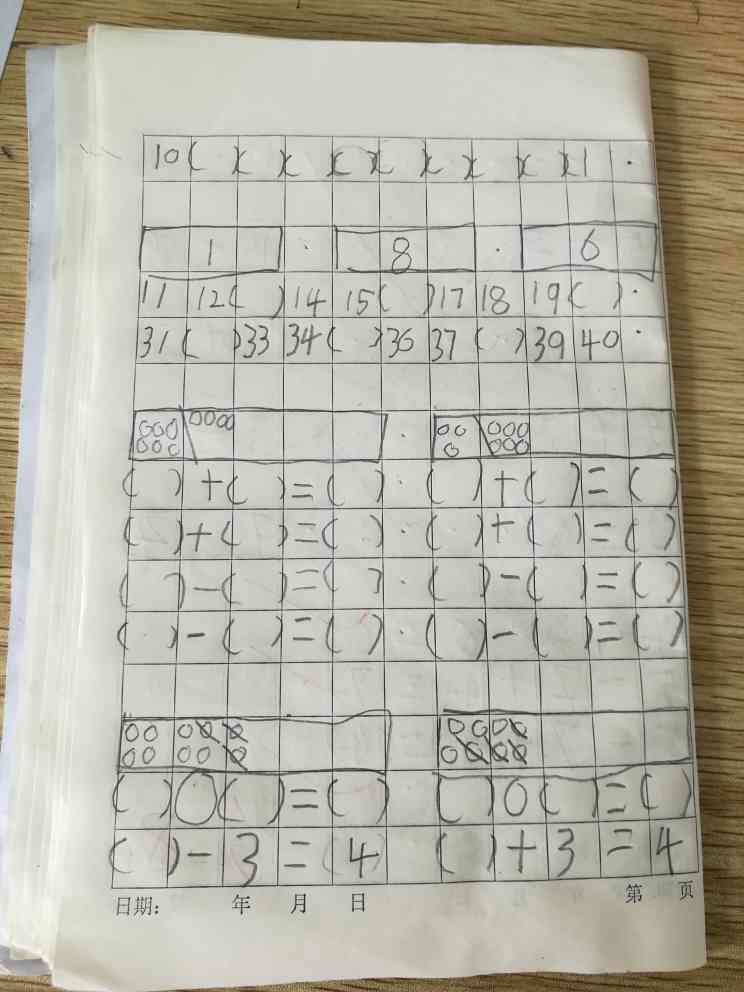 10( )( )( )( )( )( )( )( )1 .
1 . 8 . 6
11 12( )14 15( )17 18 19( ).
31( )33 34( )36 37( )39 40.
( )+( )=( ).( )+( )=( )
( )+( )=( ).( )+( )=( )
( )-( )=( ).( )-( )=( )
( )-( )=( ).( )-( )=( )
( )○( )=( ) ( )○( )=( )
( )-3=(4) ( )+3=4
日期: 年 月 日 第 页